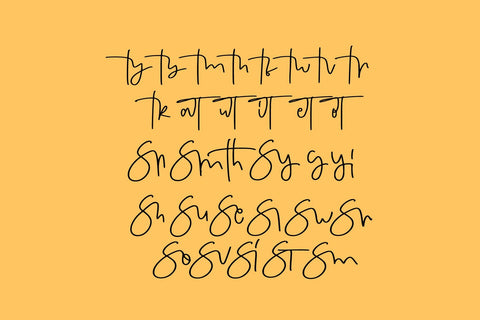 ty ty tm th ts tw tv tr
tk at ut it et ot
Sn Smth Sy g yi
Sh Su Se Si Sw Sr
So Sv Si ST Sm